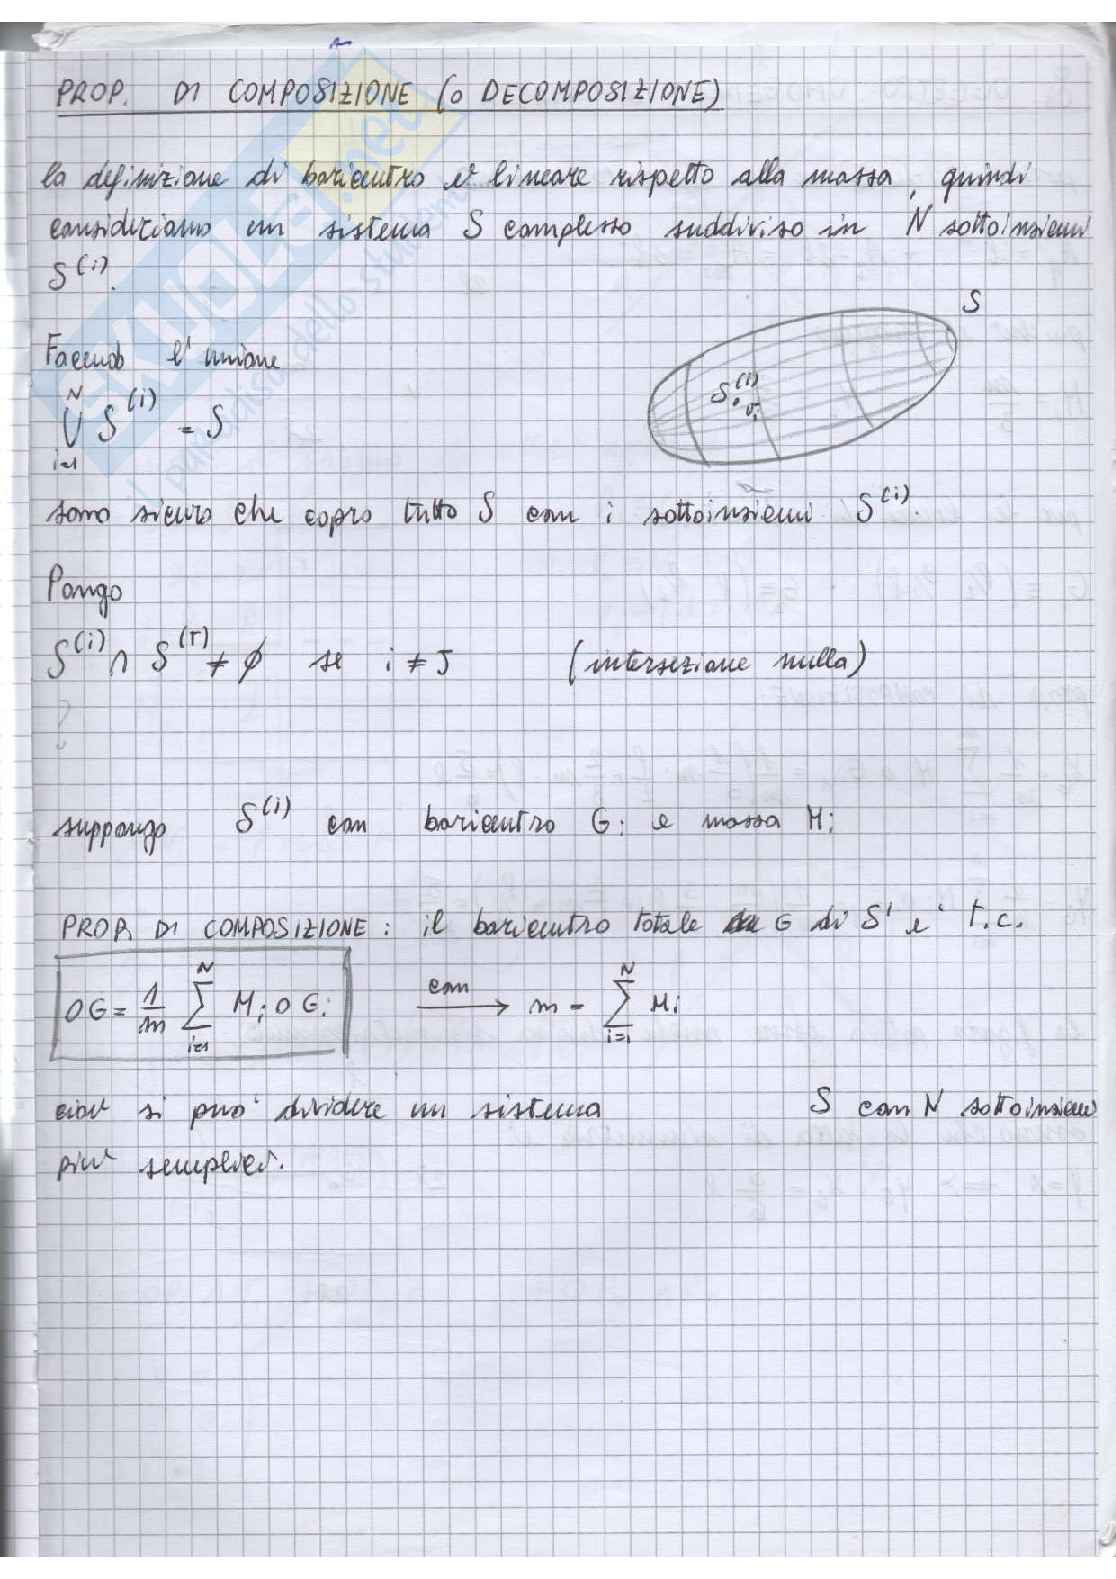 PROP. DI COMPOSIZIONE (o DECOMPOSIZIONE)
la definizione di baricentro e' lineare rispetto alla massa, quindi
consideriamo un sistema S complesso suddiviso in N sottoinsiemi
S^(i).
Facendo l'unione
S
N
⋃ S^(i) = S
i=1
S^(i)
sono sicuro che copro tutto S con i sottoinsiemi S^(i).
Pongo
S^(i) ∩ S^(J) ≠ ∅ se i ≠ J (intersezione nulla)
?
suppongo S^(i) con baricentro Gi e massa Mi
PROP. DI COMPOSIZIONE: il baricentro totale G di S' e' t.c.
OG = 1/m ∑_{i=1}^{N} Mi OGi con → m = ∑_{i=1}^{N} Mi
cioe' si puo' dividere un sistema S con N sottoinsiemi
piu' semplici.
SKUOLA.net
il paradiso dello studente